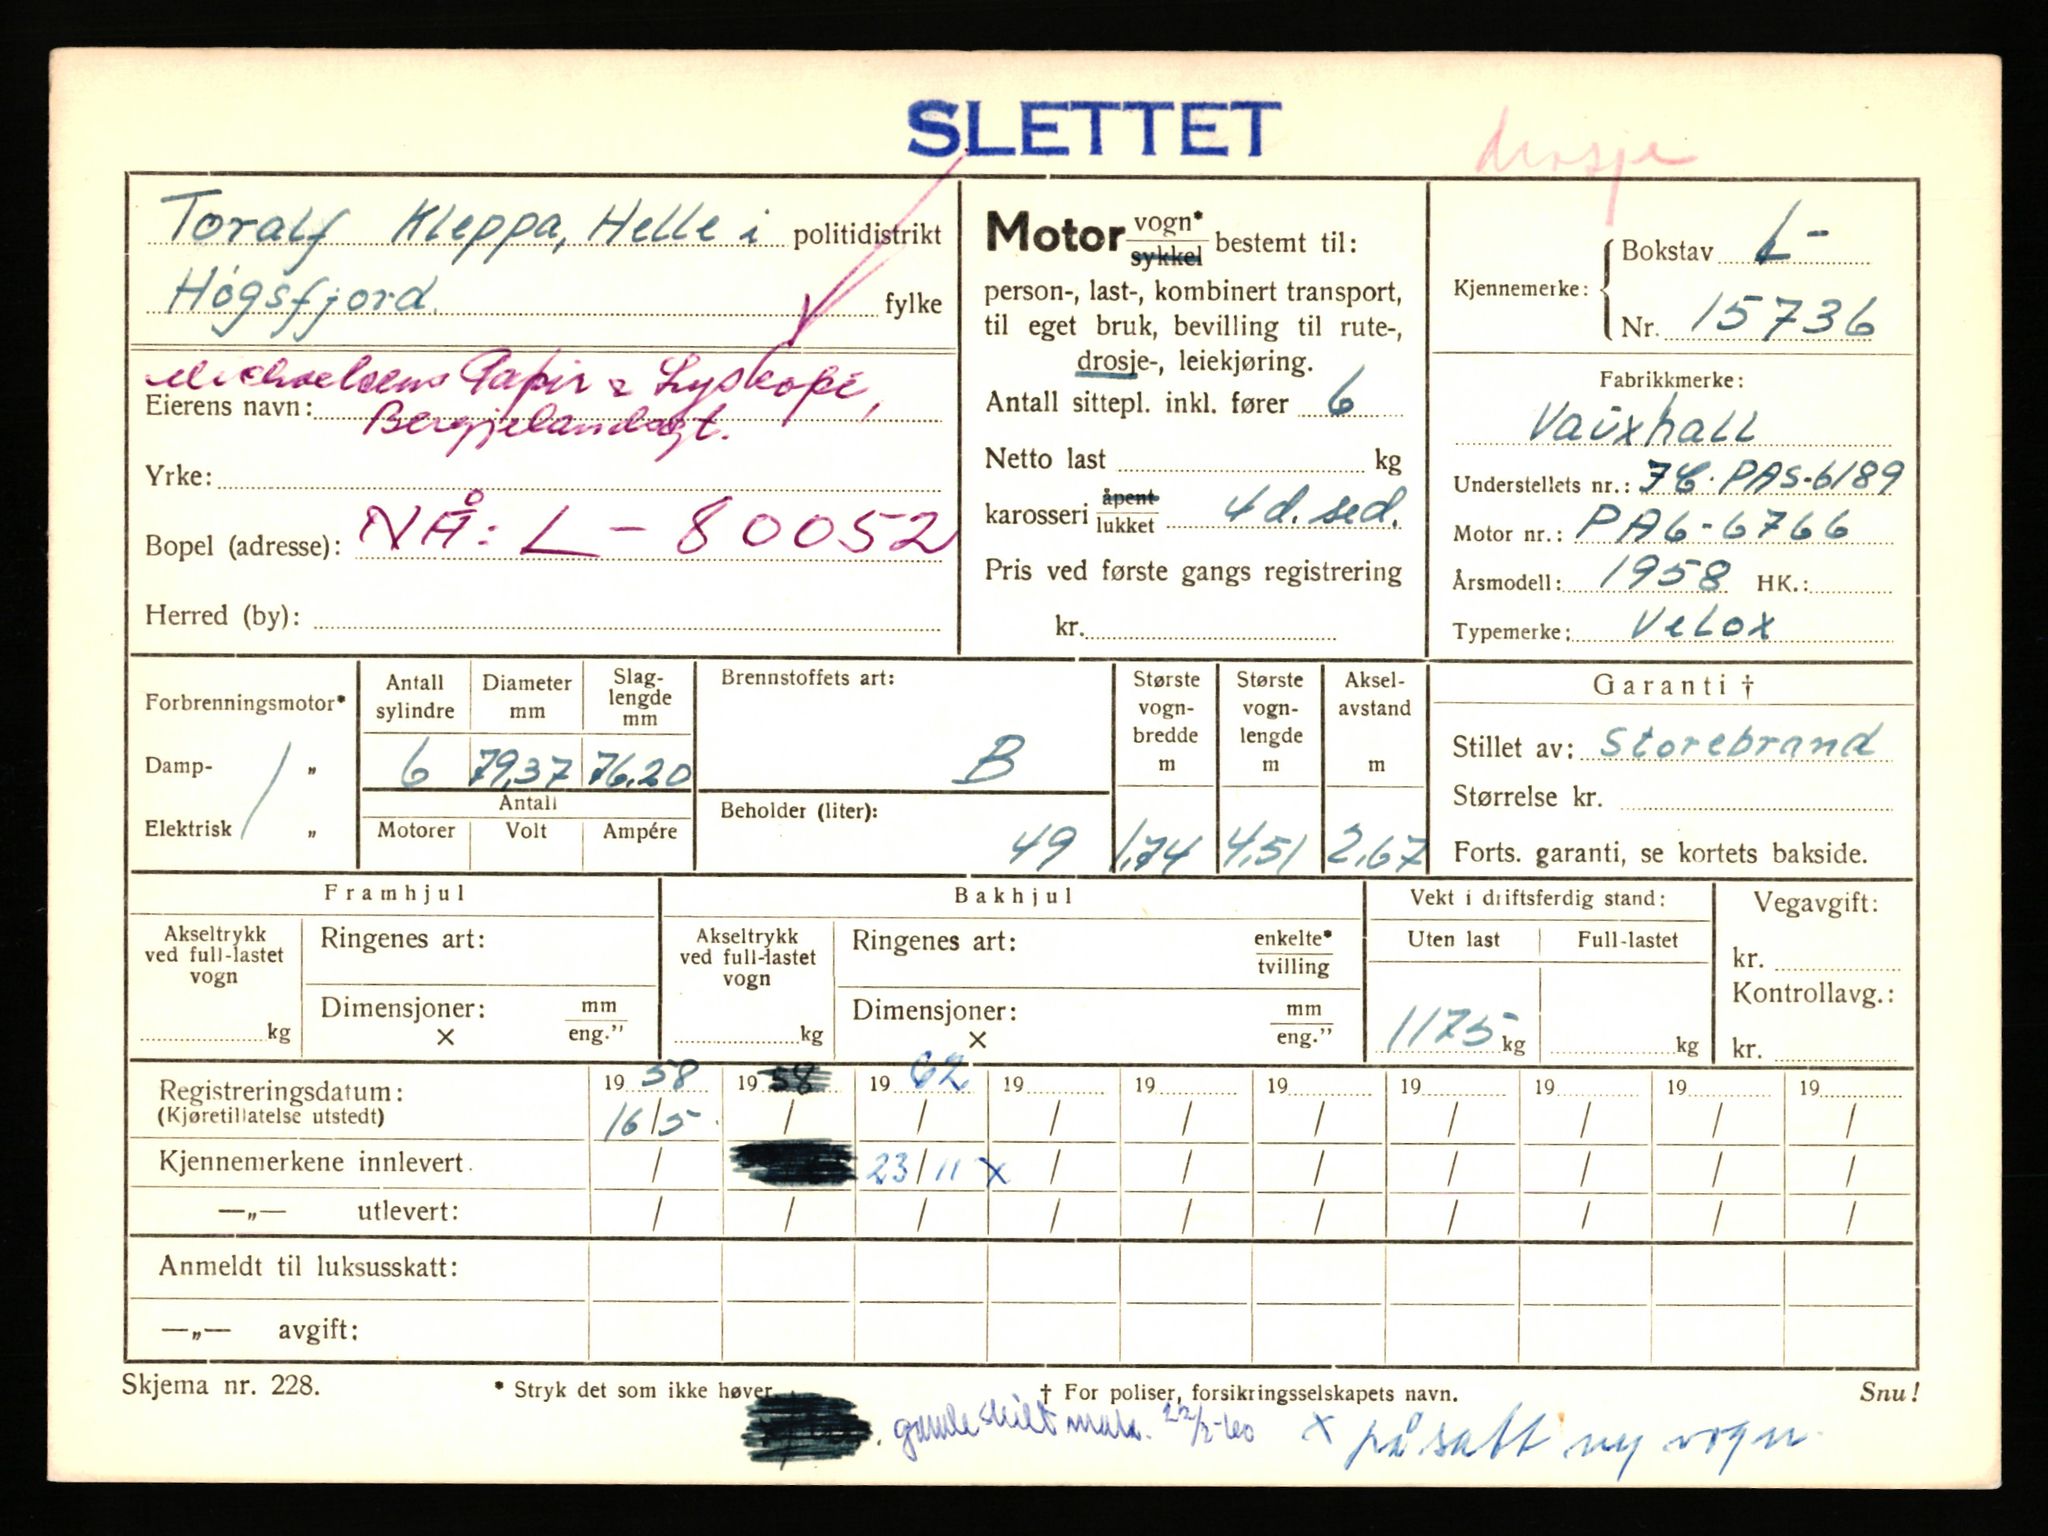 SLETTET
drosje
Toralf Kleppa, Helle i politidistrikt
Høgsfjord. fylke
Michaelsens Papir & Lyskopi,
Eierens navn:
Bergjelandsgt.
Yrke:
Bopel (adresse): NÅ: L - 80052
Herred (by):
Motor vogn* sykkel bestemt til:
person-, last-, kombinert transport,
til eget bruk, bevilling til rute-,
drosje-, leiekjøring.
Antall sittepl. inkl. fører 6
Netto last kg
karosseri åpent lukket 4 d. sed.
Pris ved første gangs registrering
kr.
Kjennemerke: Bokstav L-
Nr. 15736
Fabrikkmerke:
Vauxhall
Understellets nr.: PAS-6189
Motor nr.: PA6-6766
Årsmodell: 1958 HK.:
Typemerke: Velox
Forbrenningsmotor*
Damp- „
Elektrisk „
Antall sylindre Diameter mm Slag-lengde mm
6 79,37 76,20
Antall
Motorer Volt Ampére
Brennstoffets art:
B
Beholder (liter):
49
Største vogn-bredde m Største vogn-lengde m Aksel-avstand m
1,74 4,51 2,67
Garanti †
Stillet av: Storebrand
Størrelse kr.
Forts. garanti, se kortets bakside.
Framhjul
Akseltrykk ved full-lastet vogn
kg
Ringenes art:
Dimensjoner: mm
× eng.”
Bakhjul
Akseltrykk ved full-lastet vogn
kg
Ringenes art: enkelte* tvilling
Dimensjoner: mm
× eng.”
Vekt i driftsferdig stand:
Uten last Full-lastet
1175 kg kg
Vegavgift:
kr.
Kontrollavg.:
kr.
Registreringsdatum: 19 58 19 58 19 62 19 19 19 19 19 19 19
(Kjøretillatelse utstedt) 16/5 / / / / / / / / /
Kjennemerkene innlevert. / 23/11 x / / / / / / /
—„— utlevert: / / / / / / / / / /
Anmeldt til luksusskatt:
—„— avgift:
Skjema nr. 228. * Stryk det som ikke høver. † For poliser, forsikringsselskapets navn. Snu!
gamle skilt mak. 22/2-60 x påsatt ny vogn.